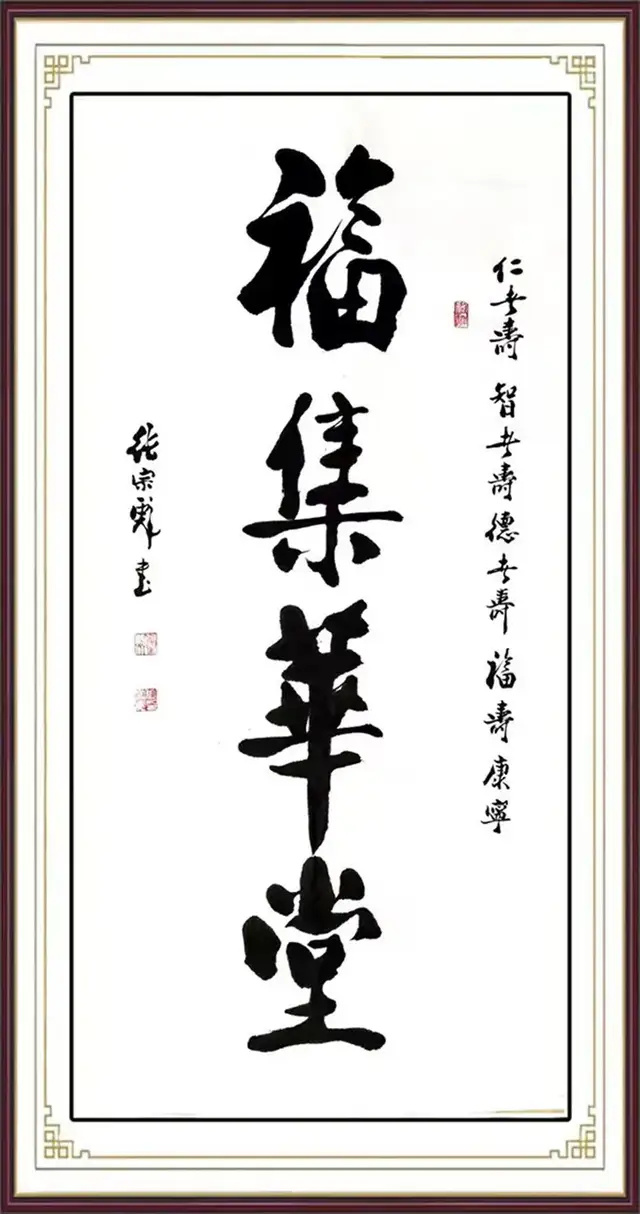 仁者壽 智者壽 德者壽 福壽康寧
福集華堂
張宗彝書